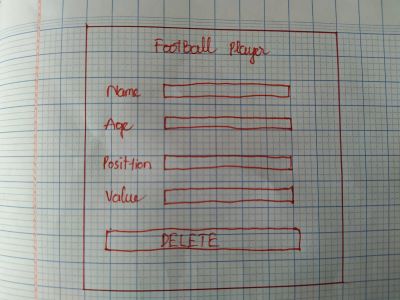 Football Player
Name
Age
Position
Value
DELETE